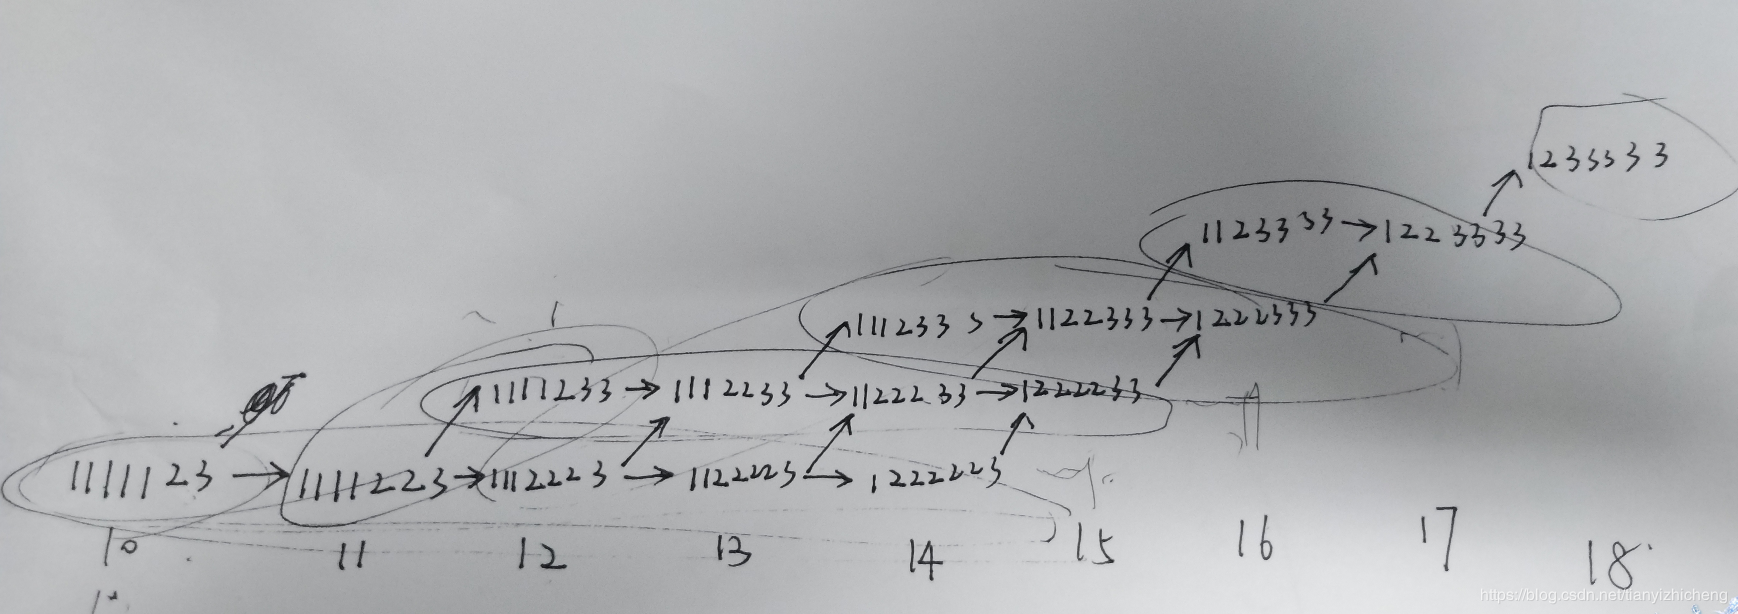 1233333
1123333 → 1223333
1112333 → 1122333 → 1222333
1111233 → 1112233 → 1122233 → 1222233
1111123 → 1111223 → 1112223 → 1122223 → 1222223
10 11 12 13 14 15 16 17 18
https://blog.csdn.net/tianyizhicheng